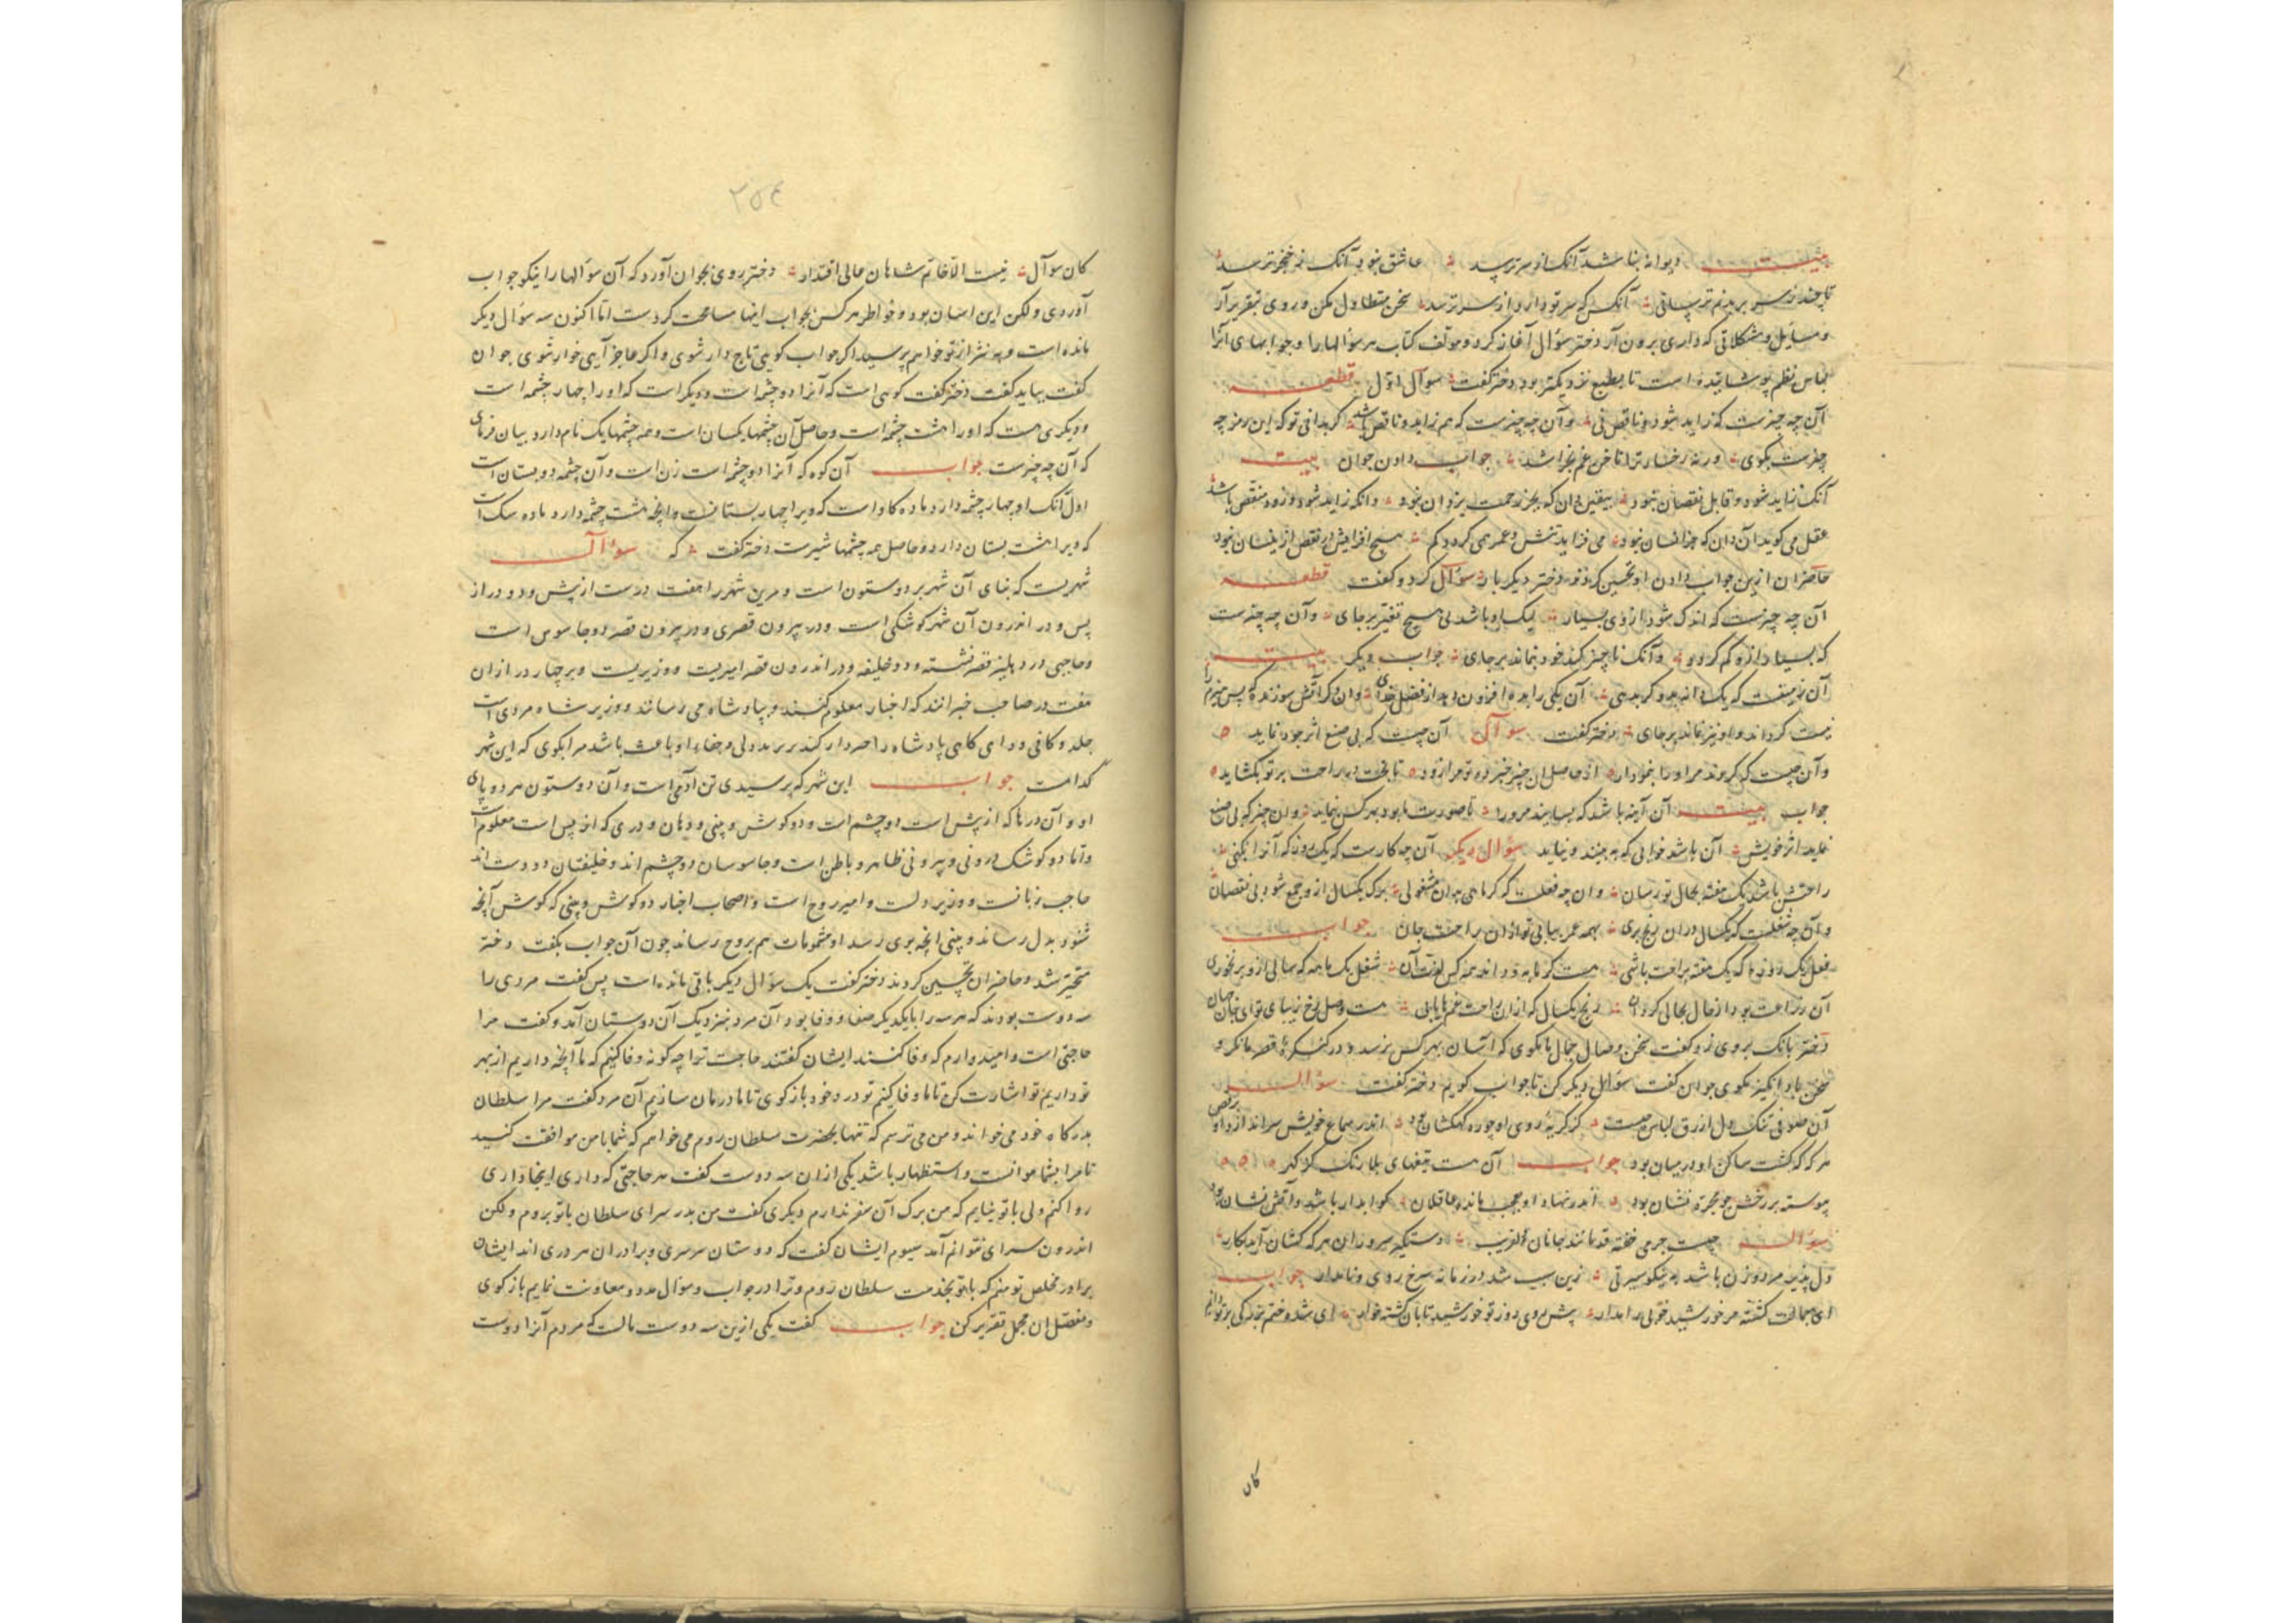 بیت دیوانه بنا شد آنک از سر ترسد عاشق نبود آنک ز خنجر ترسد
تا چند ز سر بریدنم ترسانی آنکس که سر تو دارد از سر ترسد سخن متطاول مکن و روی بتقریر آر
و مسایل و مشکلاتی که داری برون آر دختر سؤال آغاز کرد و مؤلف کتاب هر سؤالها را و جوابهای آنرا
لباس نظم پوشانیده است تا بطبع نزدیکتر بود دختر گفت سوآل اوّل قطعه
آن چه چیزست که زاید شود و ناقص نی و آن چه چیزست که هم زاید و ناقص باشد گر بدانی تو که این رمز چه
چیزست بگوی ورنه رخسار ترا ناخن غم بخراشد جواب دادن جوان بیت
آنک نه زاید شود و قابل نقصان نبود بیقین دان که بجز رحمت یزدان نبود وانکه زاید شود و زود منقص باشد
عقل می گوید آن دان که جز انسان نبود می فزاید تنش و عمر همی گردد کم هیچ افزایش از نقص از ینسان نبود
حاضران ازین جواب دادن او تحسین کردند دختر دیگر بار سؤال کرد و گفت قطعه
آن چه چیزست که اندک شود از وی بسیار لیک او باشد بی هیچ تغیّر بر جای و آن چه چیزست
که بسیار ازو کم گردد و آنک ناچیز کند خود بنماند بر جای جواب دیگر بیت
آن زمینست که یک دانه بدو گر بدهی آن یکی را بده افزون دهد از فضل خدای وان دگر آتش سوزنده که پس هیزم را
نیست گرداند و او نیز نماند بر جای دختر گفت سوآل آن چیست که بی صنع اثر جود نماید
و آن چیست که گروند مر او را بنمودار از حاصل ان چیز خبر ده تو مرا زود تا بخت در راحت بر تو بگشاید
جواب بیت آن آینه باشد که بسایند مرورا تا صورت نابود بهر کس بنماید وان چیز که بی صنع
نماید اثر خویش آن باشد خوابی که به بینند و نیاید سؤال دیگر آن چه کارست که یک روز که آنرا بکنی
راحتش باشد یک هفته بحال تو رسان وان چه فعلست که گر ماهی بدان مشغولی برک یکسال ازو جمع شود بی نقصان
و آن چه شغلست که یکسال دران رنج بری بهمه عمر بیابی تو ازان راحت جان جواب
فعل یک روزه که یک هفته براحت باشی هست گرمابه و داند همه کس لذت آن شغل یک ماهه که سالی ازو بر خوری
آن زراعت بود از حال بحالی گردان رنج یکسال که ازان راحت عمرها یابی هست وصل رخ زیبای تو ای جان جهان
دختر بانک بروی زد و گفت سخن وصال جمال ما مگوی که آسان بهر کس نرسد و در کنگره قصر ما نگر و
سخن باد انگیز مگوی جوان گفت سؤال دیگر کن تا جواب گویم دختر گفت سؤال
آن صوفی تنک دل ازرق لباس چیست کز گریه روی او چو ره کهکشان بود اندر سماع خویش سر اندازد او برقص
هر که که گشت ساکن او در میان بود جواب آن هست تیغهای بلارنک کز گهر
پیوسته بر رخش چو مجره نشان بود اندر نهاد او عجب مانده عاقلان کو ابدار باشد و آتش نشان بود
سؤال چیست جرمی خفته قد مانند جانان دلفریب دستگیر سروران هر که کشان آید بکار
دل پذیر مرد و زن باشد به نیکو سیرتی زین سبب شد در زمانه سرخ روی و نامدار جواب
ای جمالت گشته مر خورشید خوبی را مدار پیش روی روز تو خورشید تابان گشته خوار ای شده ختم بزرگی بر تو دانم
کان
۲۵۴
کان سوآل نیست الّا خاتم شاهان عالی اقتدار دختر روی بجوان آورد که آن سؤالها را نیکو جواب
آوردی ولکن این اسان بود و خواطر هر کس بجواب اینها مسامحت کردست امّا اکنون سه سؤال دیگر
مانده است و به نثر از تو خواهم پرسید اگر جواب گویی تاج دار شوی و اگر عاجز آیی خوار شوی جوان
گفت بباید گفت دختر گفت کوهی است که آنرا دو چشم است و دیگر است که او را چهار چشمه است
و دیگری هست که او را هشت چشمه است و حاصل آن چشمها یکسان است و همه چشمها یک نام دارد بیان فرمای
که آن چه چیزست جواب آن کوه که آنرا دو چشم است زن است و آن چشمه دو پستان است
اول آنک او چهار چشمه دارد ماده کاو است که ویرا چهار پستانست و انچه هشت چشمه دارد ماده سک است
که ویرا هشت پستان دارد و حاصل همه چشمها شیرست دختر گفت که سؤال
شهریست که بنای آن شهر بر دو ستون است و مرین شهر را هفت در ست از پیش و دو در از
پس و در اندرون آن شهر کوشکی است و در بیرون قصری و در بیرون قصر دو جاسوس است
و حاجبی در دهلیز قصر نشسته و دو خلیفه و در اندرون قصر امیریست و وزیریست و بر چهار در از ان
هفت در صاحب خبرانند که اخبار معلوم کنند و بپادشاه می رسانند و وزیر شاه مردی است
جلد و کافی و رای کاهی پادشاه را خبردار کند بر بد دلی و جفا و او باعث باشد مرا بگوی که این شهر
کدامست جواب این شهر که پرسیدی تن آدمی است و آن دو ستون هر دو پای
او و آن درها که از پیش است دو چشم است و دو کوش و بینی و دهان و دری که از پس است معلوم است
و امّا دو کوشک درونی و بیرونی ظاهر و باطن است و جاسوسان دو چشم اند و خلیفتان دو دست اند
حاجب زبانست و وزیر دلست و امیر روح است و اصحاب اخبار دو کوش و بینی که کوش آنچه
شنود بدل رساند و بینی انچه بوی رسد از مشمومات هم بروح رساند چون آن جواب بگفت دختر
متحیّر شد و حاضران تحسین کردند دختر گفت یک سؤال دیگر باقی مانده است پس گفت مردی را
سه دوست بودند که هر سه را با یکدیگر صفا و وفا بود آن مرد بنزدیک آن دوستان آمد و گفت مرا
حاجتی است و امیدوارم که وفا کنند ایشان گفتند حاجت ترا چه کونه وفا کنیم که ما آنچه داریم از بهر
تو داریم تو اشارت کن تا ما وفا کنیم تو درد خود باز کوی تا ما درمان سازیم آن مرد گفت مرا سلطان
بدرگاه خود می خواند و من می ترسم که تنها بحضرت سلطان روم می خواهم که شما با من موافقت کنید
تا مرا بشما موانست و استظهار باشد یکی ازان سه دوست گفت هر حاجتی که داری اینجا داری
روا کنم ولی با تو نیایم که من برک آن سفر ندارم دیگری گفت من بدر سرای سلطان با تو بروم ولکن
اندرون سرای نتوانم آمد سیوم ایشان گفت که دوستان سرسری و برادران هر دری اند ایشان
برادر مخلص تو منم که با تو بخدمت سلطان روم و ترا در جواب و سؤال مدد و معاونت نمایم باز کوی
و مفصّل ان مجمل تقریر کن جواب گفت یکی ازین سه دوست مالست که مردم آنرا دوست